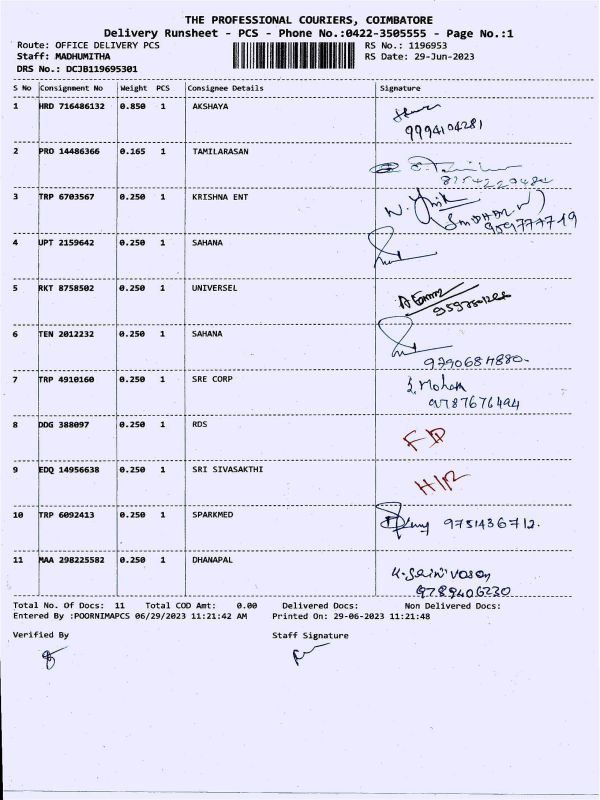 THE PROFESSIONAL COURIERS, COIMBATORE
Delivery Runsheet - PCS - Phone No.:0422-3505555 - Page No.:1
Route: OFFICE DELIVERY PCS RS No.: 1196953
Staff: MADHUMITHA RS Date: 29-Jun-2023
DRS No.: DCJB119695301
S No Consignment No Weight PCS Consignee Details Signature
1 HRD 716486132 0.850 1 AKSHAYA
9994104281
2 PRO 14486366 0.165 1 TAMILARASAN
3 TRP 6703567 0.250 1 KRISHNA ENT
4 UPT 2159642 0.250 1 SAHANA
5 RKT 8758502 0.250 1 UNIVERSEL
6 TEN 2012232 0.250 1 SAHANA
7 TRP 4910160 0.250 1 SRE CORP
Mohan
9787676494
8 DDG 388097 0.250 1 RDS
9 EDQ 14956638 0.250 1 SRI SIVASAKTHI
10 TRP 6092413 0.250 1 SPARKMED
9751436712.
11 MAA 298225582 0.250 1 DHANAPAL
9789406230
Total No. Of Docs: 11 Total COD Amt: 0.00 Delivered Docs: Non Delivered Docs:
Entered By :POORNIMAPCS 06/29/2023 11:21:42 AM Printed On: 29-06-2023 11:21:48
Verified By Staff Signature